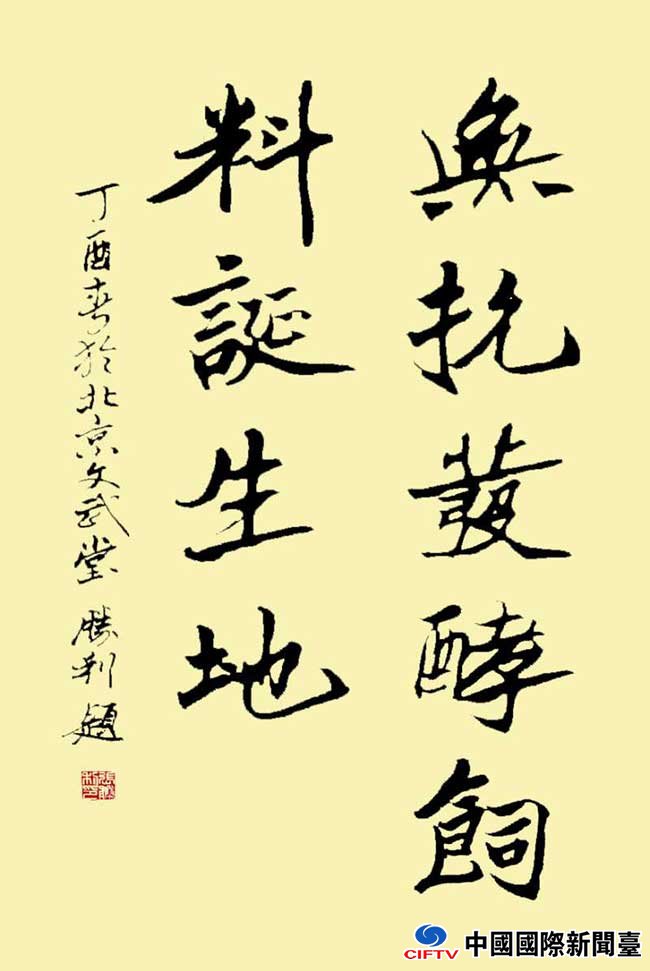 無抗發酵飼
料誕生地
丁酉春於北京文武堂 勝利題
CIFTV
中國國際新聞臺